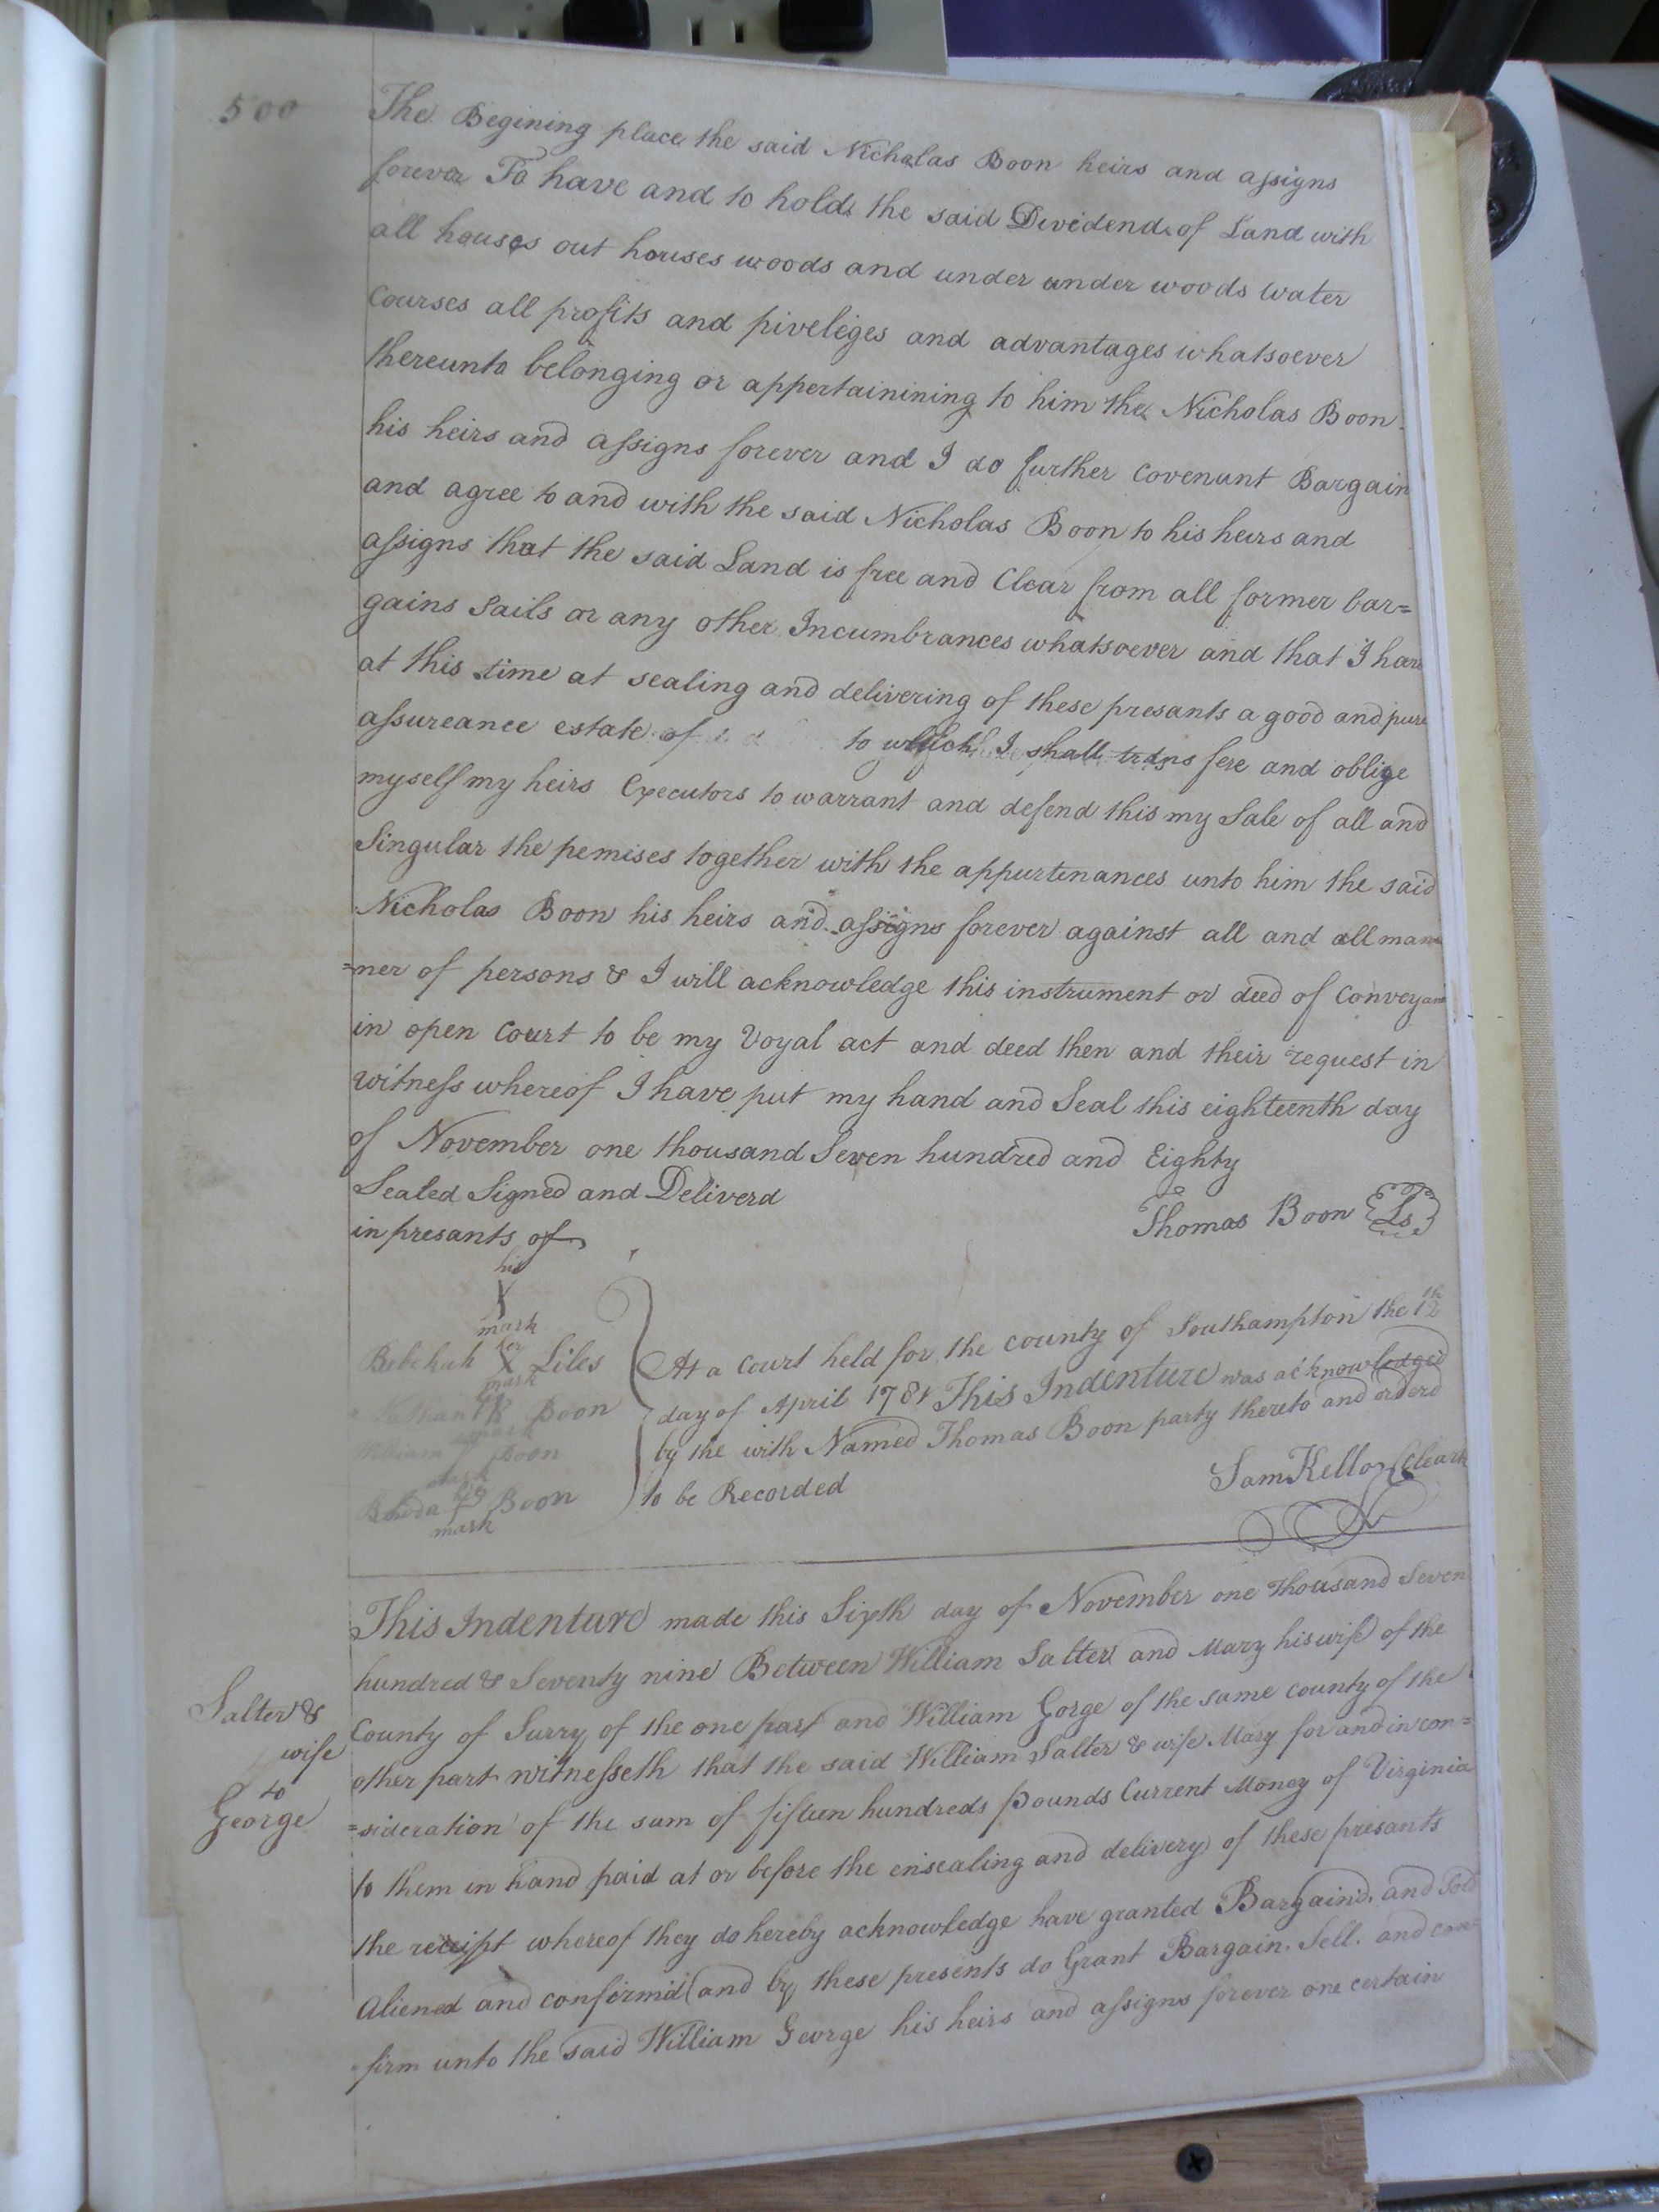 500
The Begining place the said Nicholas Boon heirs and assigns
forever To have and to hold the said Devidend of Land with
all houses out houses woods and under under woods water
Courses all profits and piveleges and advantages whatsoever
thereunto belonging or appertainining to him the Nicholas Boon
his heirs and assigns forever and I do further Covenunt Bargain
and agree to and with the said Nicholas Boon to his heirs and
assigns that the said Land is free and Clear from all former bar=
gains Sails or any other Incumbrances whatsoever and that I have
at this time at sealing and delivering of these presants a good and pure
assureance estate of to which I shall transfere and oblige
myself my heirs Executors to warrant and defend this my Sale of all and
Singular the pemises together with the appurtenances unto him the said
Nicholas Boon his heirs and assigns forever against all and all man
=ner of persons & I will acknowledge this instrument or deed of Conveyan
in open Court to be my Voyal act and deed then and their request in
Witness whereof I have put my hand and Seal this eighteenth day
of November one thousand Seven hundred and Eighty
Sealed Signed and Deliverd
in presants of
Thomas Boon Ls
his
X
mark
her
Bebehah X Liles
mark
Nathan Boon
mark
William Boon
mark
Rhoda Boon
mark
At a Court held for the county of Southampton the 12th
day of April 1781 This Indenture was acknowledged
by the with Named Thomas Boon party thereto and orderd
to be Recorded
Sam Kello Cleark
Salter &
wife
to
George
This Indenture made this Sixth day of November one thousand Seven
hundred & Seventy nine Between William Salter and Mary his wife of the
County of Surry of the one part and William Gorge of the same county of the
other part witnesseth that the said William Salter & wife Mary for and in con=
=sideration of the sum of fifteen hundreds pounds Current Money of Virginia
to them in hand paid at or before the ensealing and delivery of these presants
the receipt whereof they do hereby acknowledge have granted Bargaind. and Sold
Aliened and confirmd (and by these presents do Grant Bargain. Sell. and con=
=firm unto the said William George his heirs and assigns forever one certain